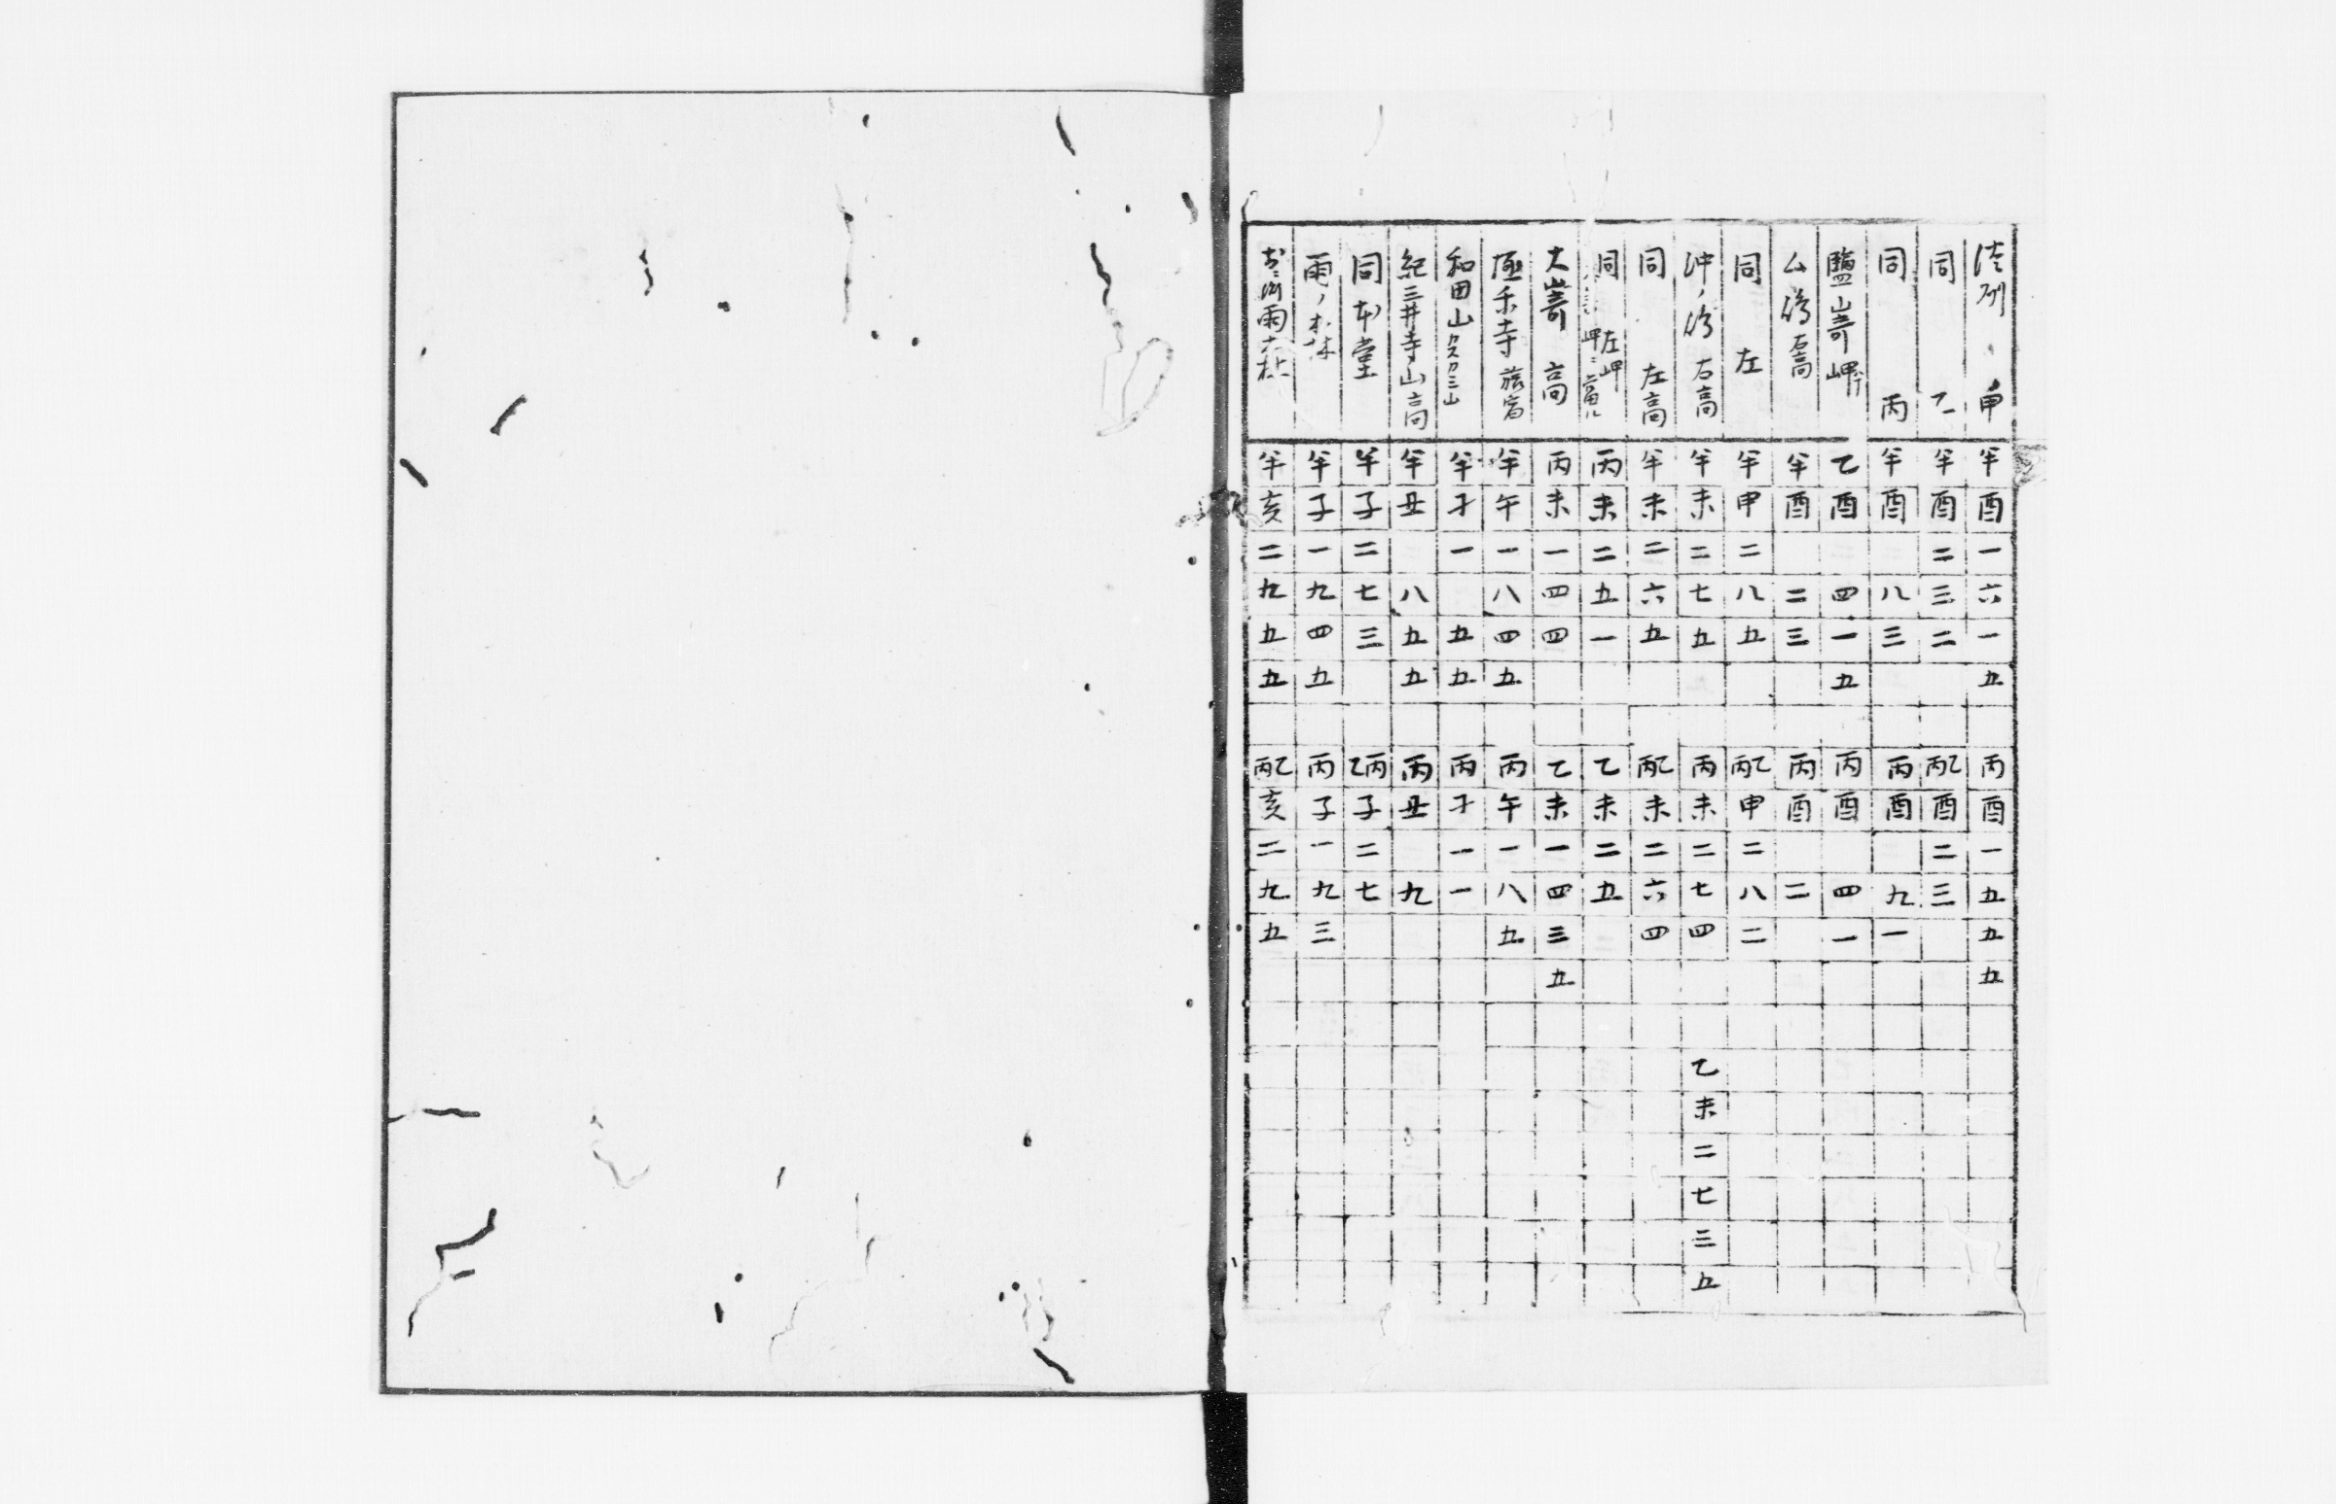 淡刕 甲 半酉一六一五 丙酉一五五五
同 乙 半酉二三二 丙乙酉二三
同 丙 半酉八三 丙酉九一
鹽嵜岬 乙酉四一五 丙酉四一
半酉二三 丙酉二
同 左 半申二八五 丙乙申二八二
沖ノ 右高 半未二七五 丙未二七四 乙未二七三五
同 左高 半未二六五 丙乙未二六四
同 左岬 丙未二五一 乙未二五
大嵜 高 丙未一四四 乙未一四三五
極楽寺 旅宿 半午一八四五 丙午一八五
和田山 半才一五五 丙才一一
紀三井寺山高 半丑八五五 丙丑九
同本堂 半子二七三 乙丙子二七
雨ノ森 半子一九四五 丙子一九三
半亥二九五五 丙乙亥二九五